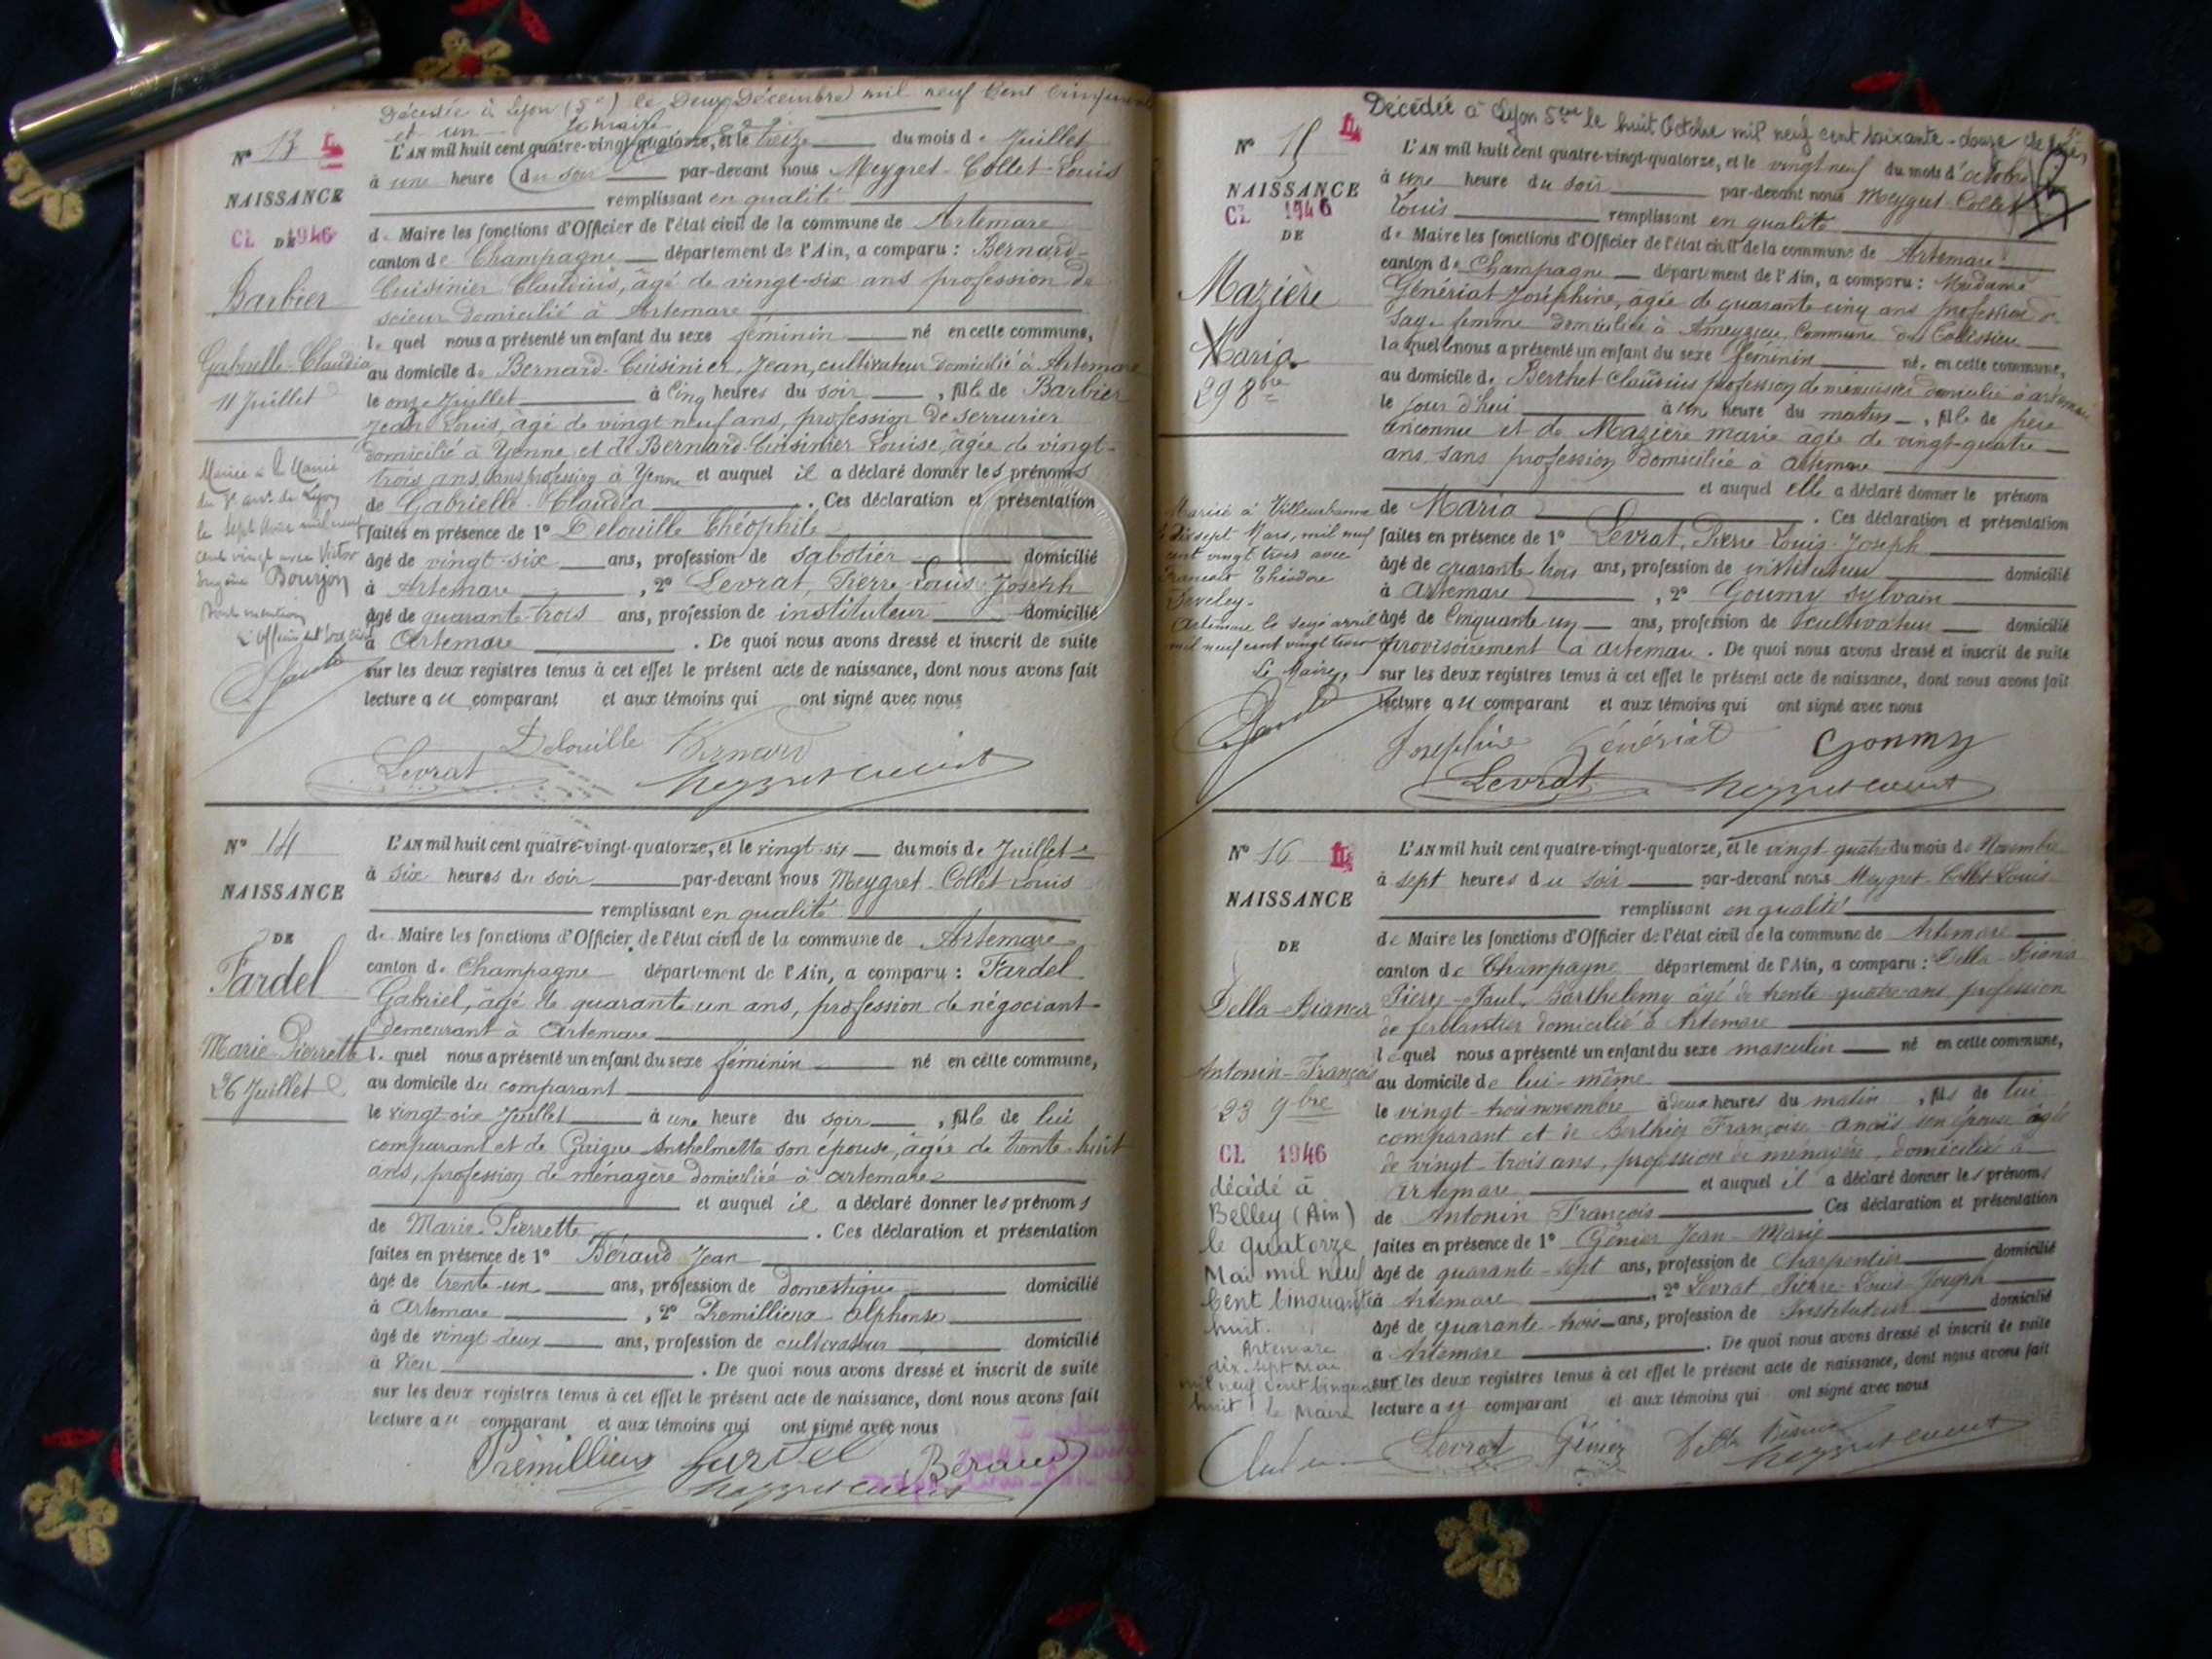 Décédée à Lyon (5e) le Deux Décembre mil neuf Cent Cinquante
et un
N° 13
L'AN mil huit cent quatre-vingt-quatorze, et le treize du mois de Juillet
à une heure du soir par-devant nous Meygret-Collet Louis
NAISSANCE
remplissant en qualité
CL 1946
DE
de Maire les fonctions d'Officier de l'état civil de la commune de Artemare
canton de Champagne département de l'Ain, a comparu : Bernard-
Barbier
Cuisinier Claudius, âgé de vingt-six ans profession de
scieur domicilié à Artemare
lequel nous a présenté un enfant du sexe féminin né en cette commune,
Gabrielle-Claudia
au domicile de Bernard-Cuisinier Jean, cultivateur domicilié à Artemare
11 Juillet
le onze Juillet à cinq heures du soir, fille de Barbier
Jean Louis, âgé de vingt neuf ans, profession de serrurier
domicilié à Yenne et de Bernard-Cuisinier Louise, âgée de vingt-
trois ans, sans profession à Yenne et auquel il a déclaré donner les prénoms
de Gabrielle-Claudia. Ces déclaration et présentation
Mariée à la Mairie
du 5e arrt de Lyon
le sept mil neuf
cent vingt avec Victor
Eugène Bourjon
Dont mention
L'Officier de l'état civil
faites en présence de 1° Delouille Théophile
âgé de vingt-six ans, profession de sabotier domicilié
à Artemare, 2° Levrat, Pierre Louis Joseph
âgé de quarante-trois ans, profession de instituteur domicilié
à Artemare. De quoi nous avons dressé et inscrit de suite
sur les deux registres tenus à cet effet le présent acte de naissance, dont nous avons fait
lecture au comparant et aux témoins qui ont signé avec nous
Delouille Bernard
Levrat Meygret Collet
N° 14
L'AN mil huit cent quatre-vingt-quatorze, et le vingt-six du mois de Juillet
à six heures du soir par-devant nous Meygret-Collet Louis
NAISSANCE
remplissant en qualité
DE
de Maire les fonctions d'Officier de l'état civil de la commune de Artemare
Fardel
canton de Champagne département de l'Ain, a comparu : Fardel
Gabriel, âgé de quarante un ans, profession de négociant
demeurant à Artemare
Marie-Pierrette
lequel nous a présenté un enfant du sexe féminin né en cette commune,
26 Juillet
au domicile du comparant
le vingt-six Juillet à une heure du soir, fille de lui
comparant et de Guigue Anthelmette son épouse, âgée de trente-huit
ans, profession de ménagère domiciliée à Artemare
et auquel il a déclaré donner les prénoms
de Marie-Pierrette. Ces déclaration et présentation
faites en présence de 1° Béraud Jean
âgé de trente-un ans, profession de domestique domicilié
à Artemare, 2° Premillieux Alphonse
âgé de vingt-deux ans, profession de cultivateur domicilié
à Vieu. De quoi nous avons dressé et inscrit de suite
sur les deux registres tenus à cet effet le présent acte de naissance, dont nous avons fait
lecture au comparant et aux témoins qui ont signé avec nous
Prémillieux Fardel Béraud
Meygret Collet
Décédée à Lyon 5ème le huit Octobre mil neuf cent soixante-douze
N° 15
L'AN mil huit cent quatre-vingt-quatorze, et le vingt neuf du mois d'octobre
à une heure du soir par-devant nous Meygret-Collet
NAISSANCE
CL 1946
Louis remplissant en qualité
DE
de Maire les fonctions d'Officier de l'état civil de la commune de Artemare
canton de Champagne département de l'Ain, a comparu : Madame
Mazière
Génériat Joséphine, âgée de quarante cinq ans profession de
sage-femme domiciliée à Ameyzieu Commune de Talissieu
Maria
laquelle nous a présenté un enfant du sexe féminin né en cette commune,
29 8bre
au domicile de Berthet Claudius profession de menuisier domicilié à artemare
le jour d'hui à une heure du matin, fille de père
inconnu et de Mazière marie âgée de vingt-quatre
ans, sans profession domiciliée à artemare
et auquel elle a déclaré donner le prénom
de Maria. Ces déclaration et présentation
Mariée à Villeurbanne
le Dix sept Mars, mil neuf
cent vingt trois avec
François Théodore
Artemare le seize avril
mil neuf cent vingt trois
Le Maire,
faites en présence de 1° Levrat, Pierre Louis-Joseph
âgé de quarante trois ans, profession de instituteur domicilié
à Artemare, 2° Goumy Sylvain
âgé de Cinquante-un ans, profession de cultivateur domicilié
provisoirement à artemare. De quoi nous avons dressé et inscrit de suite
sur les deux registres tenus à cet effet le présent acte de naissance, dont nous avons fait
lecture au comparant et aux témoins qui ont signé avec nous
Joséphine Génériat Goumy
Levrat Meygret Collet
N° 16
L'AN mil huit cent quatre-vingt-quatorze, et le vingt-quatre du mois de Novembre
à sept heures du soir par-devant nous Meygret-Collet Louis
NAISSANCE
remplissant en qualité
DE
de Maire les fonctions d'Officier de l'état civil de la commune de Artemare
canton de Champagne département de l'Ain, a comparu : Della-Bianca
Della-Bianca
Pierre-Paul-Barthelemy âgé de trente quatre ans, profession
de ferblantier domicilié à Artemare
lequel nous a présenté un enfant du sexe masculin né en cette commune,
Antonin-François
au domicile de lui-même
23 9bre
le vingt-trois novembre à deux heures du matin, fils de lui
comparant et de Berthier Françoise-Anaïs son épouse âgée
CL 1946
de vingt-trois ans, profession de ménagère, domiciliée à
Artemare et auquel il a déclaré donner les prénoms
de Antonin François Ces déclaration et présentation
décédé à
Belley (Ain)
le quatorze
Mai mil neuf
Cent Cinquante
huit.
Artemare
dix-sept Mai
mil neuf cent Cinquante
huit le Maire
faites en présence de 1° Génier Jean-Marie
âgé de quarante-sept ans, profession de Charpentier domicilié
à Artemare, 2° Levrat Pierre-Louis-Joseph
âgé de quarante-trois ans, profession de Instituteur domicilié
à Artemare. De quoi nous avons dressé et inscrit de suite
sur les deux registres tenus à cet effet le présent acte de naissance, dont nous avons fait
lecture au comparant et aux témoins qui ont signé avec nous
Levrat Génier Della Bianca
Meygret Collet